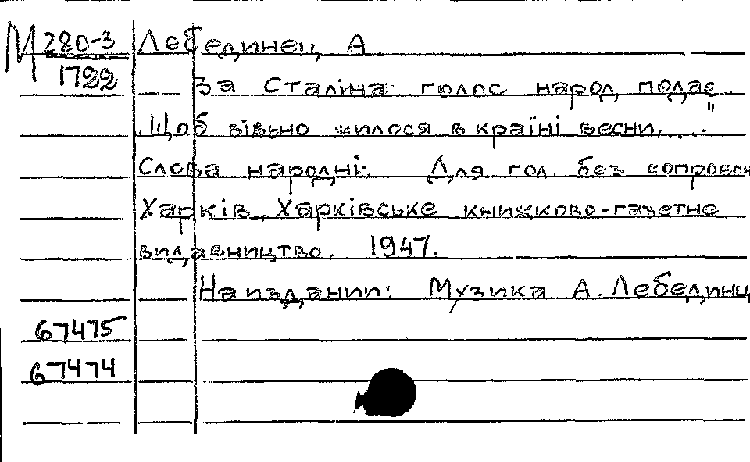 М 280-3 Лебединец А
1722
За Сталіна голос народ подає.
Щоб вільно жилося в країні весни....."
Слова народні. Для гол. без сопровож
Харків, Харківське книжково-газетне
видавництво. 1947.
На издании: Музика А. Лебединц
67475
67474